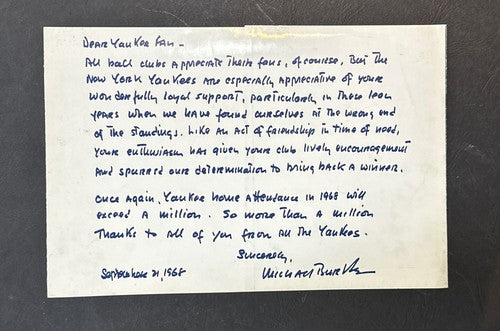 Dear Yankee Fan -
All ball clubs appreciate their fans, of course. But the
New York Yankees are especially appreciative of your
wonderfully loyal support, particularly in these lean
years when we have found ourselves at the wrong end
of the standings. Like an act of friendship in time of need,
your enthusiasm has given your club lively encouragement
and spurred our determination to bring back a winner.
Once again, Yankee home attendance in 1968 will
exceed a million. So more than a million
thanks to all of you from all the Yankees.
Sincerely,
September 21, 1968 Michael Burke